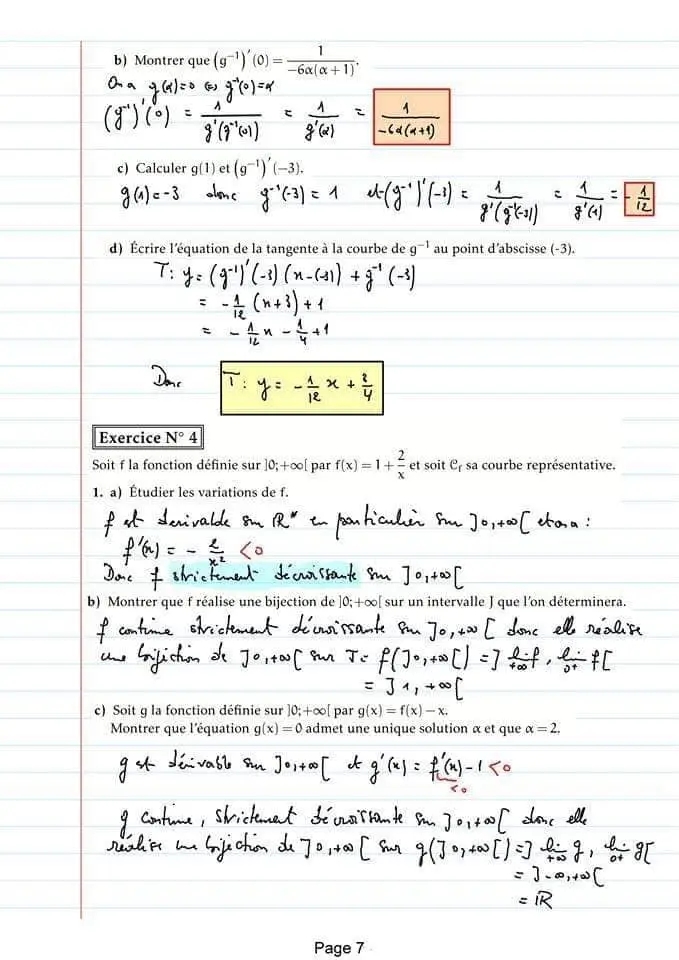 b) Montrer que (g⁻¹)′(0) = 1/(-6α(α+1)).
On a g(α)=0 ⇔ g⁻¹(0)=α
(g⁻¹)′(0) = 1/(g′(g⁻¹(0))) = 1/(g′(α)) = 1/(-6α(α+1))
c) Calculer g(1) et (g⁻¹)′(-3).
g(1)=-3 donc g⁻¹(-3)=1 et (g⁻¹)′(-3) = 1/(g′(g⁻¹(-3))) = 1/(g′(1)) = -1/12
d) Écrire l'équation de la tangente à la courbe de g⁻¹ au point d'abscisse (-3).
T: y = (g⁻¹)′(-3)(x-(-3)) + g⁻¹(-3)
= -1/12 (x+3)+1
= -1/12 x - 1/4 + 1
Donc T: y = -1/12 x + 3/4
Exercice N° 4
Soit f la fonction définie sur ]0;+∞[ par f(x) = 1 + 2/x et soit 𝒞f sa courbe représentative.
1. a) Étudier les variations de f.
f est derivable sur ℝ* en particulier sur ]0,+∞[ et on a :
f′(x) = - 2/x² <0
Donc f strictement décroissante sur ]0,+∞[
b) Montrer que f réalise une bijection de ]0;+∞[ sur un intervalle J que l'on déterminera.
f continue strictement décroissante sur ]0,+∞[ donc elle réalise
une bijection de ]0,+∞[ sur J = f(]0,+∞[) = ] lim +∞ f, lim 0⁺ f[
= ]1,+∞[
c) Soit g la fonction définie sur ]0;+∞[ par g(x) = f(x) − x.
Montrer que l'équation g(x) = 0 admet une unique solution α et que α = 2.
g est dérivable sur ]0,+∞[ et g′(x) = f′(x)-1 <0
<0
g continue, strictement décroissante sur ]0,+∞[ donc elle
réalise une bijection de ]0,+∞[ sur g(]0,+∞[) = ] lim +∞ g, lim 0⁺ g[
= ]-∞,+∞[
= ℝ
Page 7